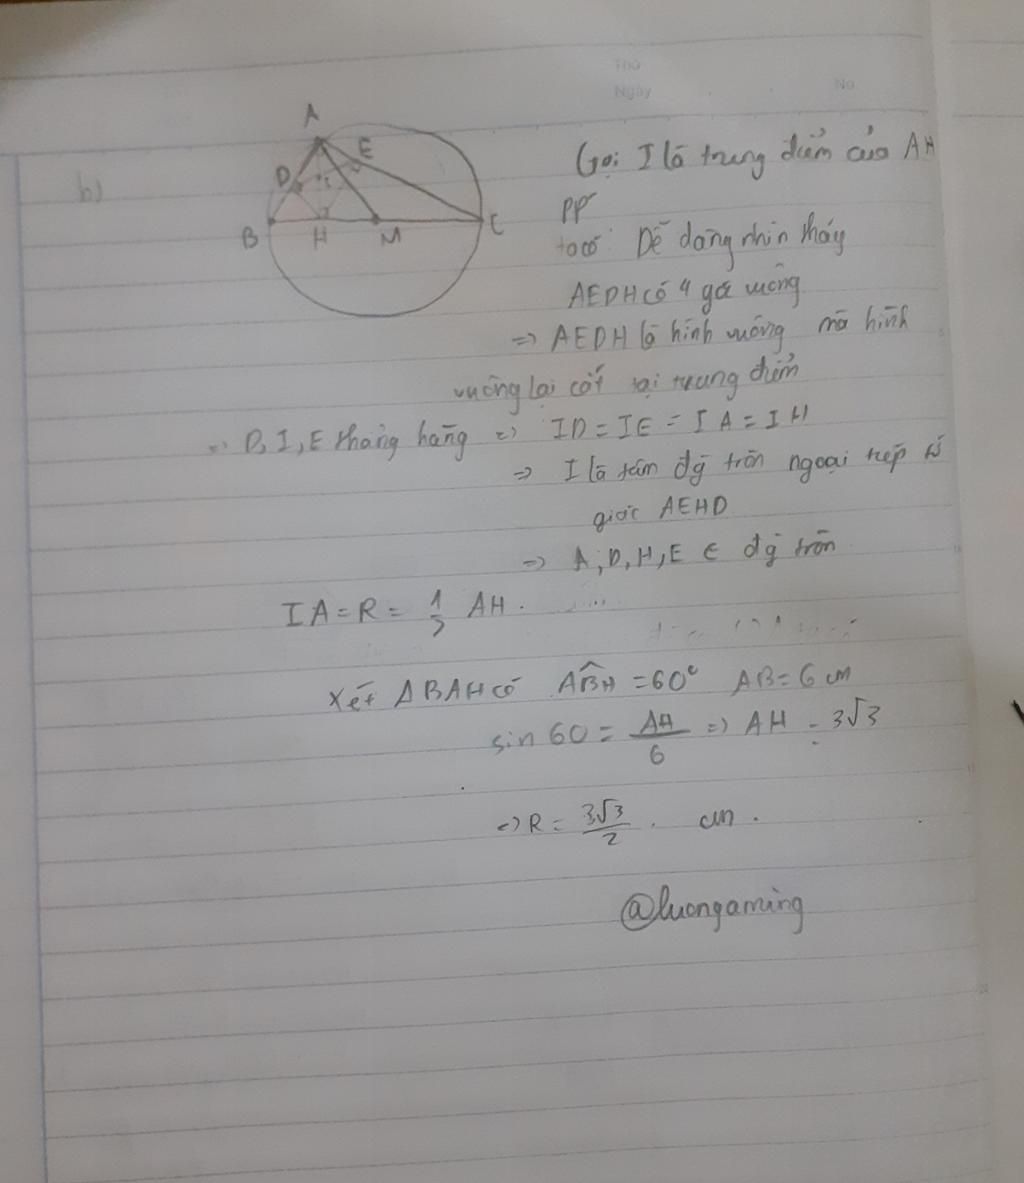 Thứ
Ngày
No
b)
A
E
D
I
B
H
M
C
Gọi I là trung điểm của AH
ta có: Dễ dàng nhìn thấy
AEDH có 4 góc vuông
=> AEDH là hình vuông mà hình
vuông lại cắt tại trung điểm
=> D, I, E thẳng hàng => ID = IE = IA = IH
=> I là tâm đg tròn ngoại tiếp tứ
giác AEHD
=> A, D, H, E ∈ đg tròn
IA = R = 1/2 AH.
Xét ΔBAH có ABH = 60° AB = 6 cm
sin 60 = AH/6 => AH = 3√3
=> R = 3√3/2 . cm .
@luongaming